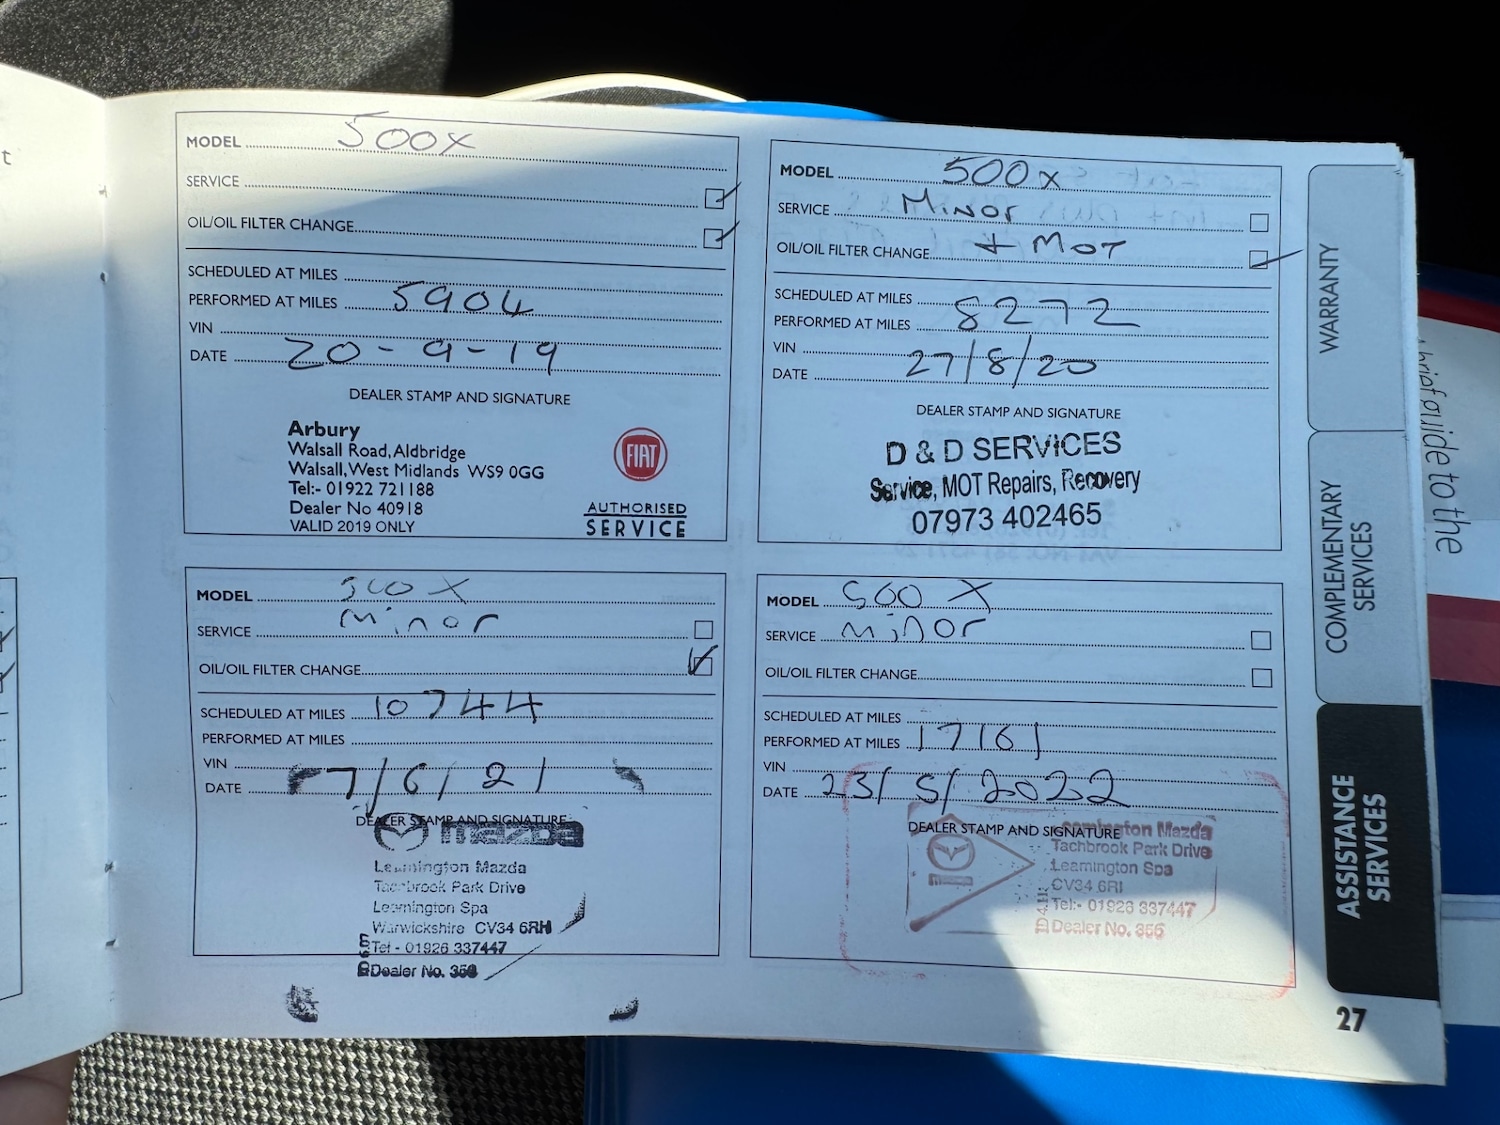 t
MODEL 500X
SERVICE
OIL/OIL FILTER CHANGE
SCHEDULED AT MILES
PERFORMED AT MILES 5904
VIN
DATE 20-9-19
DEALER STAMP AND SIGNATURE
Arbury
Walsall Road, Aldbridge
Walsall, West Midlands WS9 0GG
Tel:- 01922 721188
Dealer No 40918
VALID 2019 ONLY
FIAT
AUTHORISED
SERVICE
MODEL 500x
SERVICE Minor
OIL/OIL FILTER CHANGE + MOT
SCHEDULED AT MILES
PERFORMED AT MILES 8272
VIN
DATE 27/8/20
DEALER STAMP AND SIGNATURE
D & D SERVICES
Service, MOT Repairs, Recovery
07973 402465
MODEL 500X
SERVICE minor
OIL/OIL FILTER CHANGE
SCHEDULED AT MILES 10744
PERFORMED AT MILES
VIN
DATE 7/6/21
DEALER STAMP AND SIGNATURE
mazda
Leamington Mazda
Tachbrook Park Drive
Leamington Spa
Warwickshire CV34 6RH
Tel - 01926 337447
Dealer No. 356
MODEL 500 X
SERVICE minor
OIL/OIL FILTER CHANGE
SCHEDULED AT MILES
PERFORMED AT MILES 17161
VIN
DATE 23/5/2022
DEALER STAMP AND SIGNATURE
Leamington Mazda
Tachbrook Park Drive
Leamington Spa
CV34 6RH
Tel:- 01926 337447
Dealer No. 356
WARRANTY
COMPLEMENTARY
SERVICES
ASSISTANCE
SERVICES
27
brief guide to the